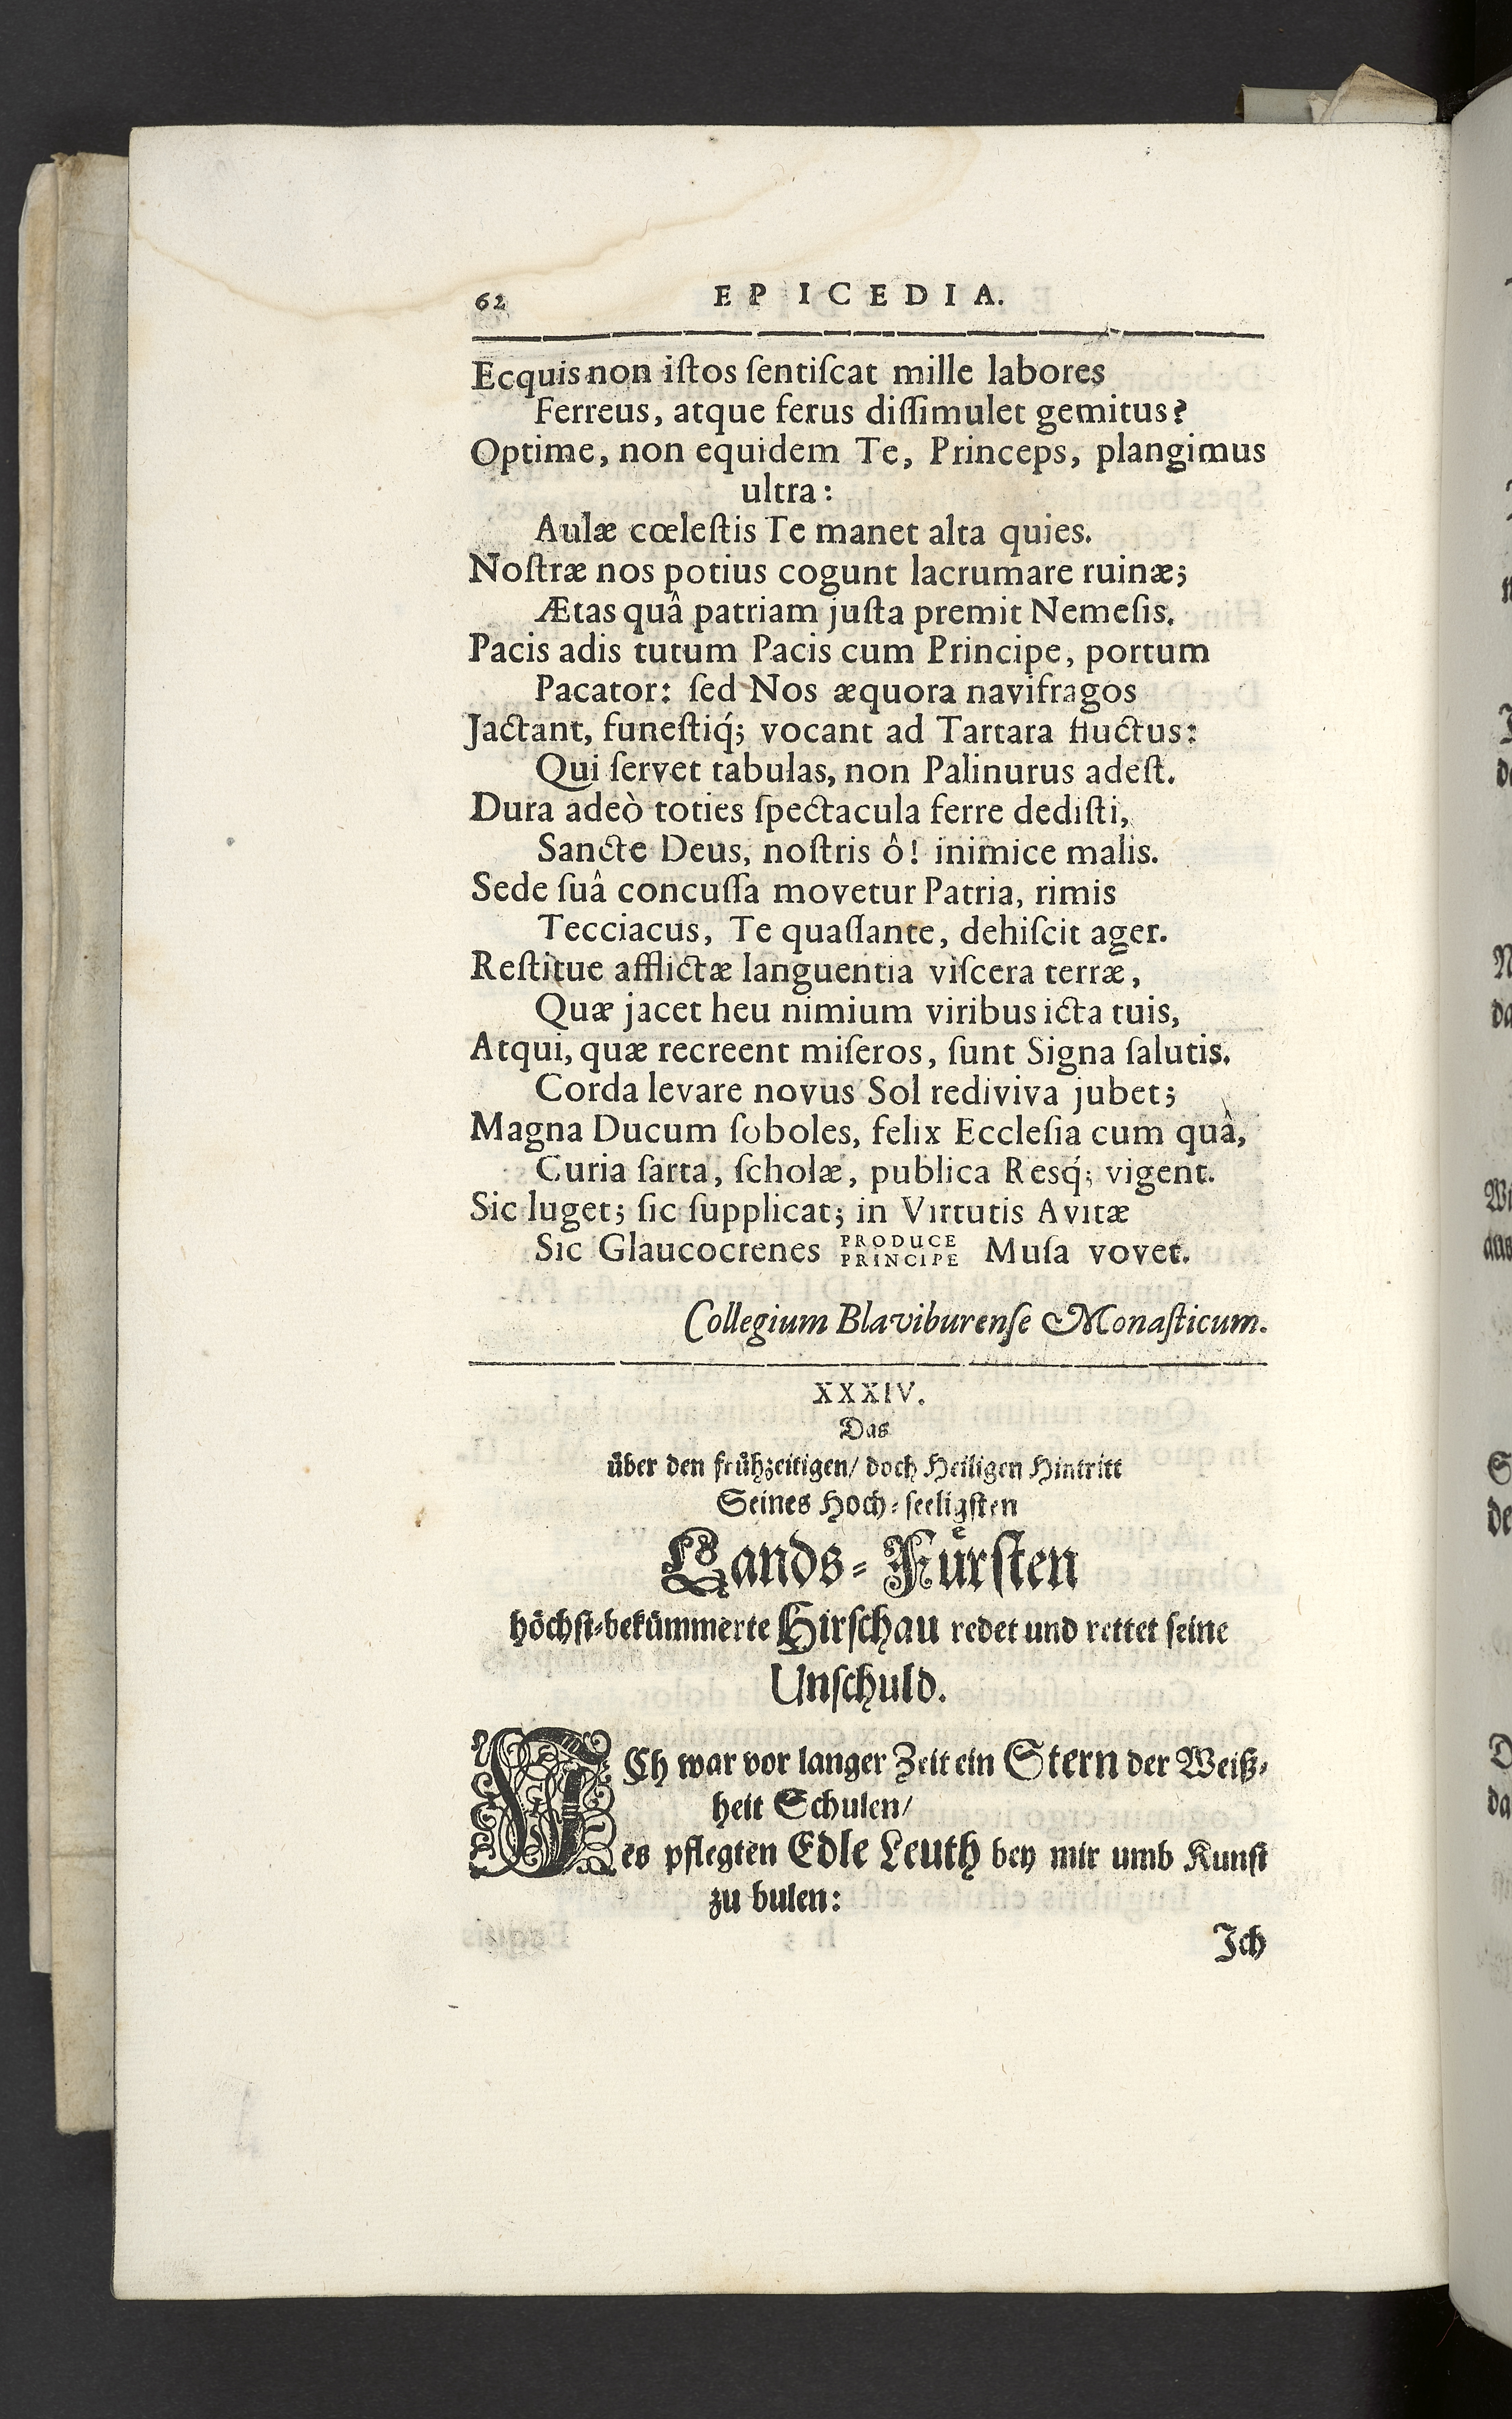 62 EPICEDIA.
Ecquis non iſtos ſentiſcat mille labores
Ferreus, atque ferus diſſimulet gemitus?
Optime, non equidem Te, Princeps, plangimus
ultra:
Aulæ cœleſtis Te manet alta quies.
Noſtræ nos potius cogunt lacrumare ruinæ;
Ætas quâ patriam juſta premit Nemeſis.
Pacis adis tutum Pacis cum Principe, portum
Pacator: ſed Nos æquora navifragos
Jactant, funeſtiq́; vocant ad Tartara fluctus:
Qui ſervet tabulas, non Palinurus adeſt.
Dura adeò toties ſpectacula ferre dediſti,
Sancte Deus, noſtris ô! inimice malis.
Sede ſuâ concuſſa movetur Patria, rimis
Tecciacus, Te quaſſante, dehiſcit ager.
Reſtitue afflictæ languentia viſcera terræ,
Quæ jacet heu nimium viribus icta tuis,
Atqui, quæ recreent miſeros, ſunt Signa ſalutis.
Corda levare novus Sol rediviva jubet;
Magna Ducum ſoboles, felix Eccleſia cum quâ,
Curia ſarta, ſcholæ, publica Resq́; vigent.
Sic luget; ſic ſupplicat; in Virtutis Avitæ
Sic Glaucocrenes PRODUCE PRINCIPE Muſa vovet.
Collegium Blaviburenſe Monaſticum.
XXXIV.
Das
über den frühzeitigen/ doch Heiligen Hintritt
Seines Hoch-ſeeligſten
Lands-Fürſten
höchſt-bekümmerte Hirſchau redet und rettet ſeine
Unſchuld.
ICh war vor langer Zeit ein Stern der Weiß-
heit Schulen/
es pflegten Edle Leuth bey mir umb Kunſt
zu bulen:
Ich